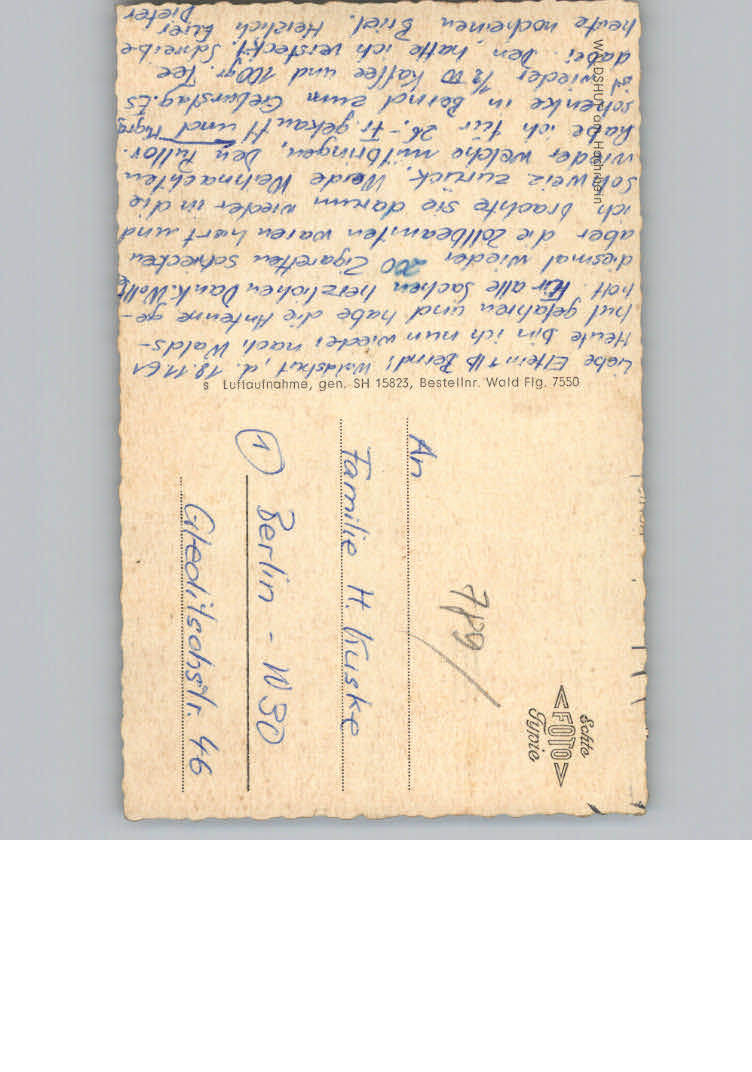 Liebe Eltern + lb Bernd! Waldshut, d. 18.11.61
Heute bin ich nun wieder nach Walds-
hut gefahren und habe die Antenne ge-
holt. Für alle Sachen herzlichen Dank. Wollte
diesmal wieder 200 Zigaretten
aber die Zollbeamten waren hart und
ich brachte sie darum wieder in die
Schweiz zurück. Werde Weihnachten
wieder welche mitbringen, Den Pullov.
habe ich für 26.- Fr. gekauft und
schenke in Bernd zum Geburtstag. Es
ist wieder 1/2 ℔ Kaffee und 100 gr. Tee
dabei. Den hatte ich versteckt. Schreibe
heute noch einen Brief. Herzlich Euer
Dieter
WALDSHUT am Hochrhein
s Luftaufnahme, gen. SH 15823, Bestellnr. Wald Flg. 7550
Echte
FOTO
Typie
789/
An
Familie H. Kuske
(1) Berlin - W 30
Gleditschstr. 46